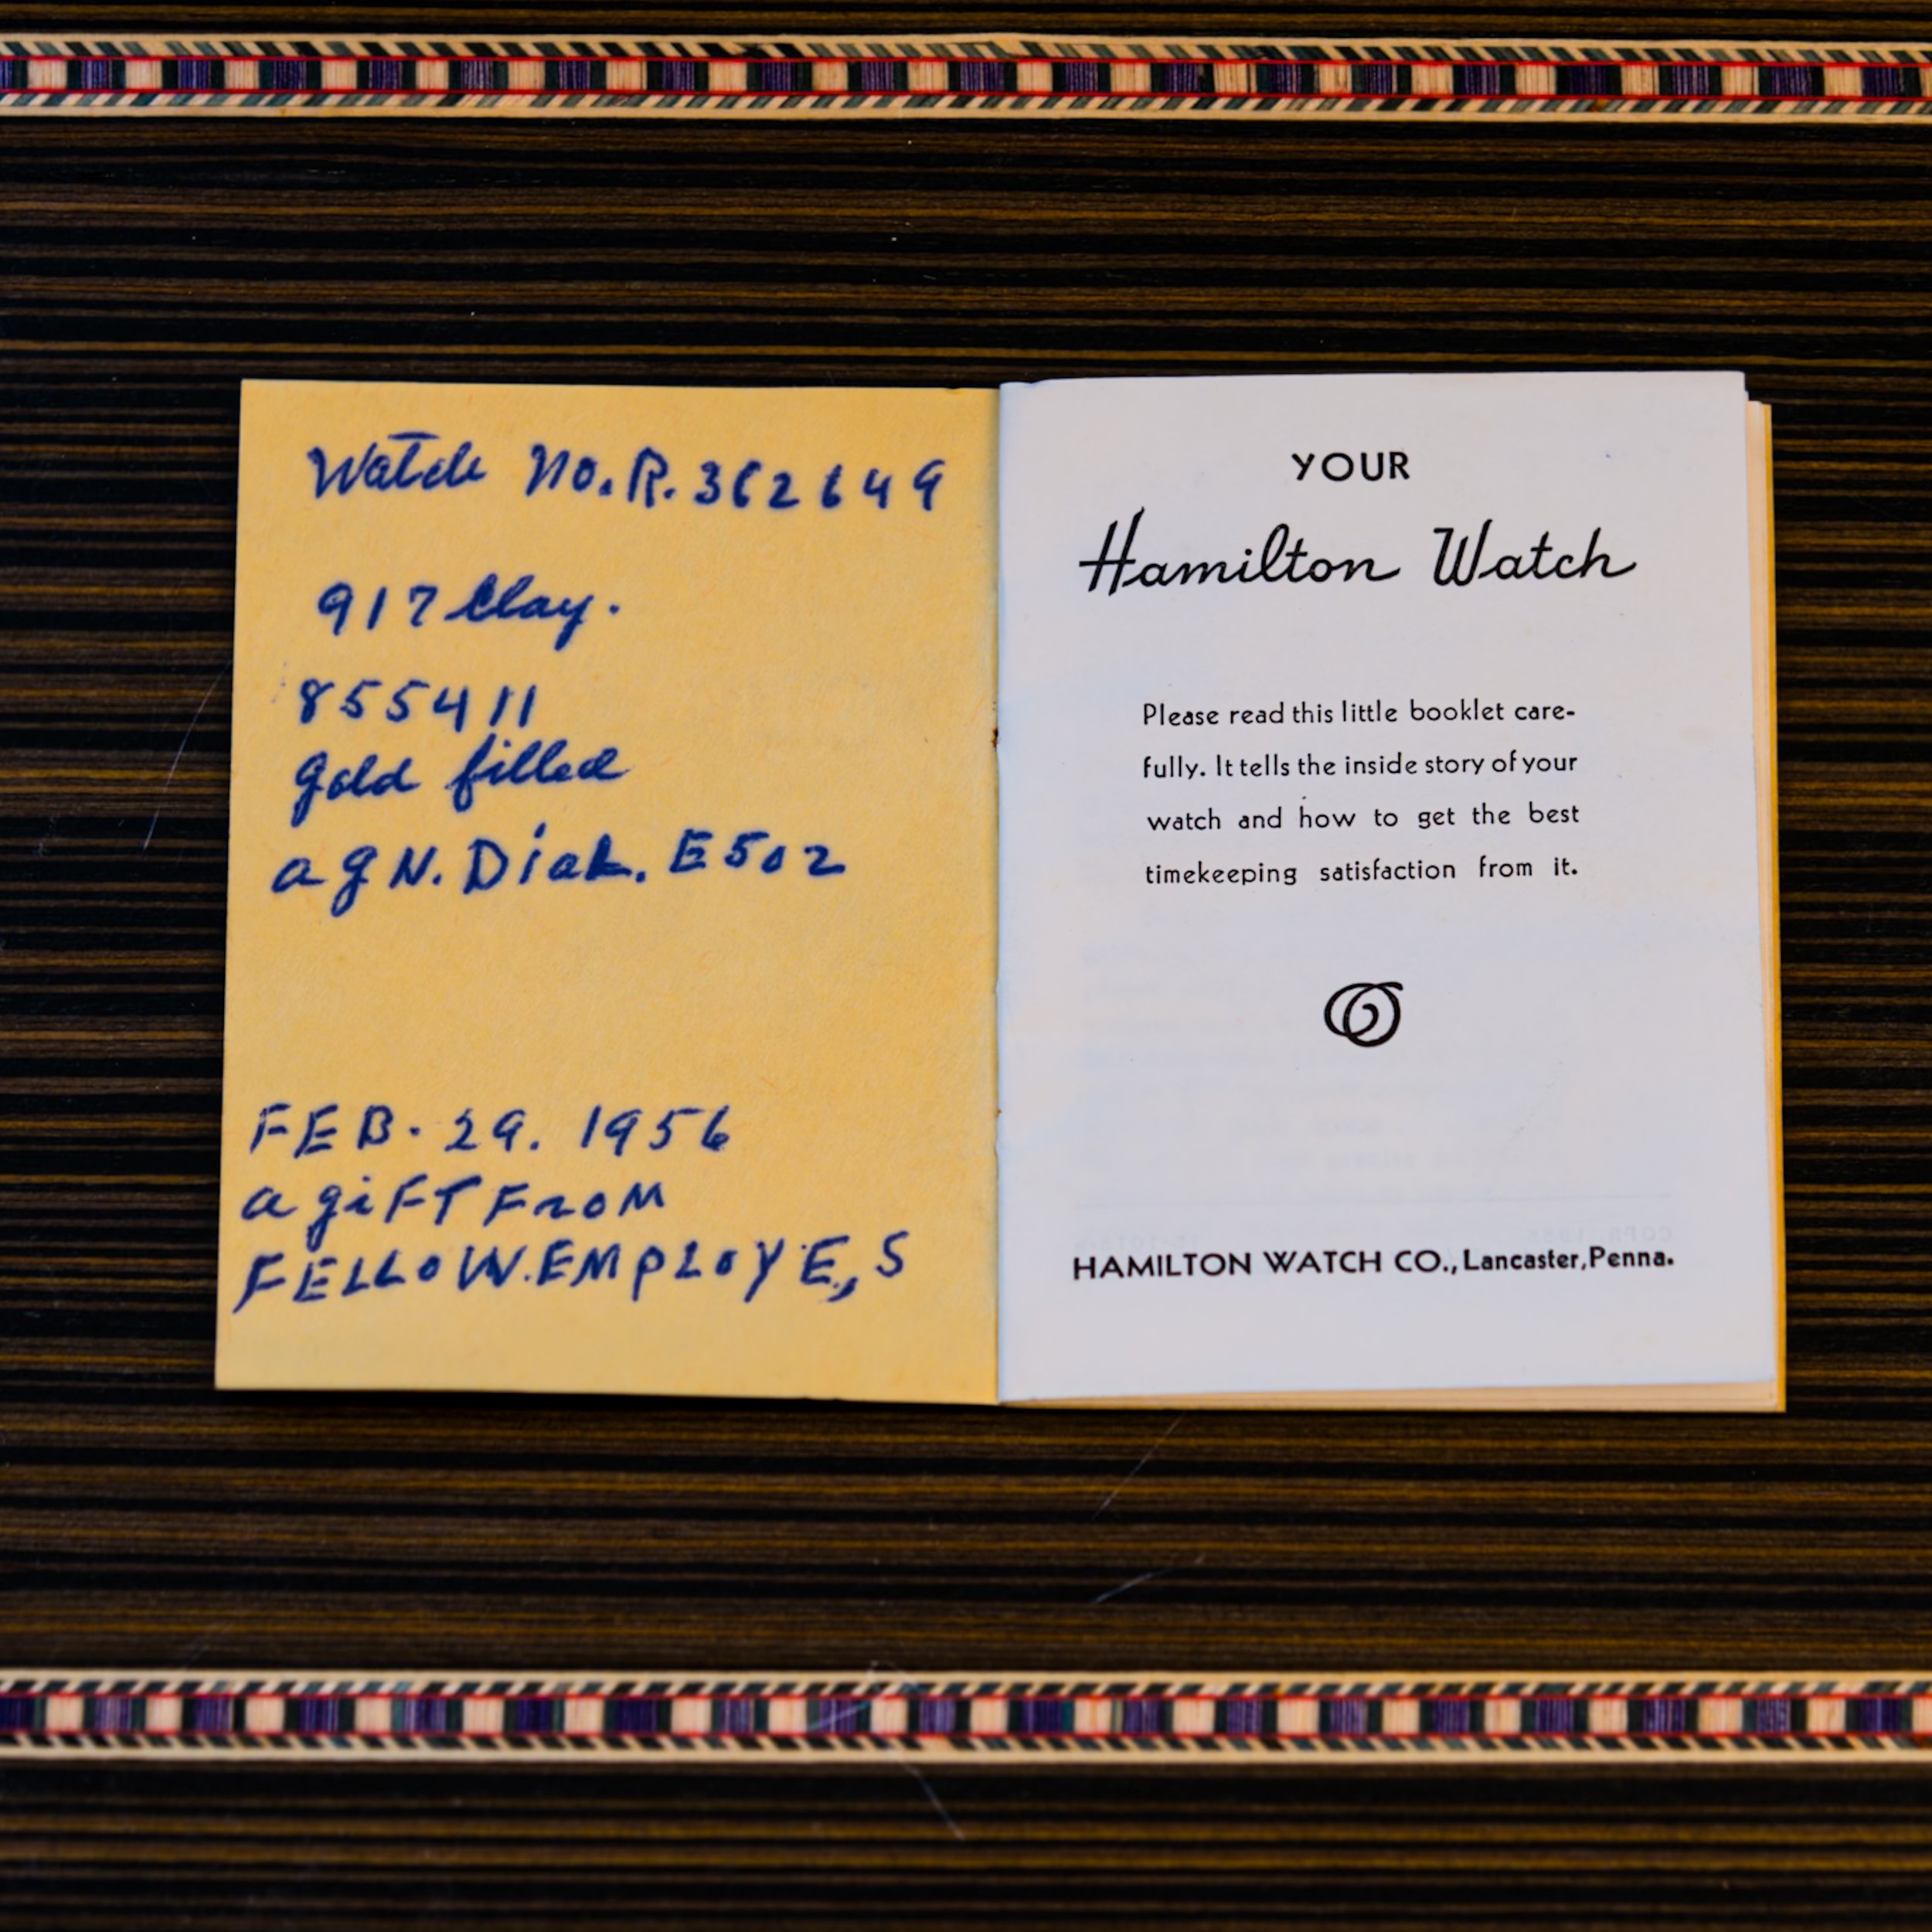 Watch No. R. 362649
917 Clay.
855411
gold filled
a g N. Dial. E502
FEB. 29. 1956
a giFT FROM
FELLOW. EMPLOYE,S
YOUR
Hamilton Watch
Please read this little booklet care-
fully. It tells the inside story of your
watch and how to get the best
timekeeping satisfaction from it.
HAMILTON WATCH CO., Lancaster, Penna.